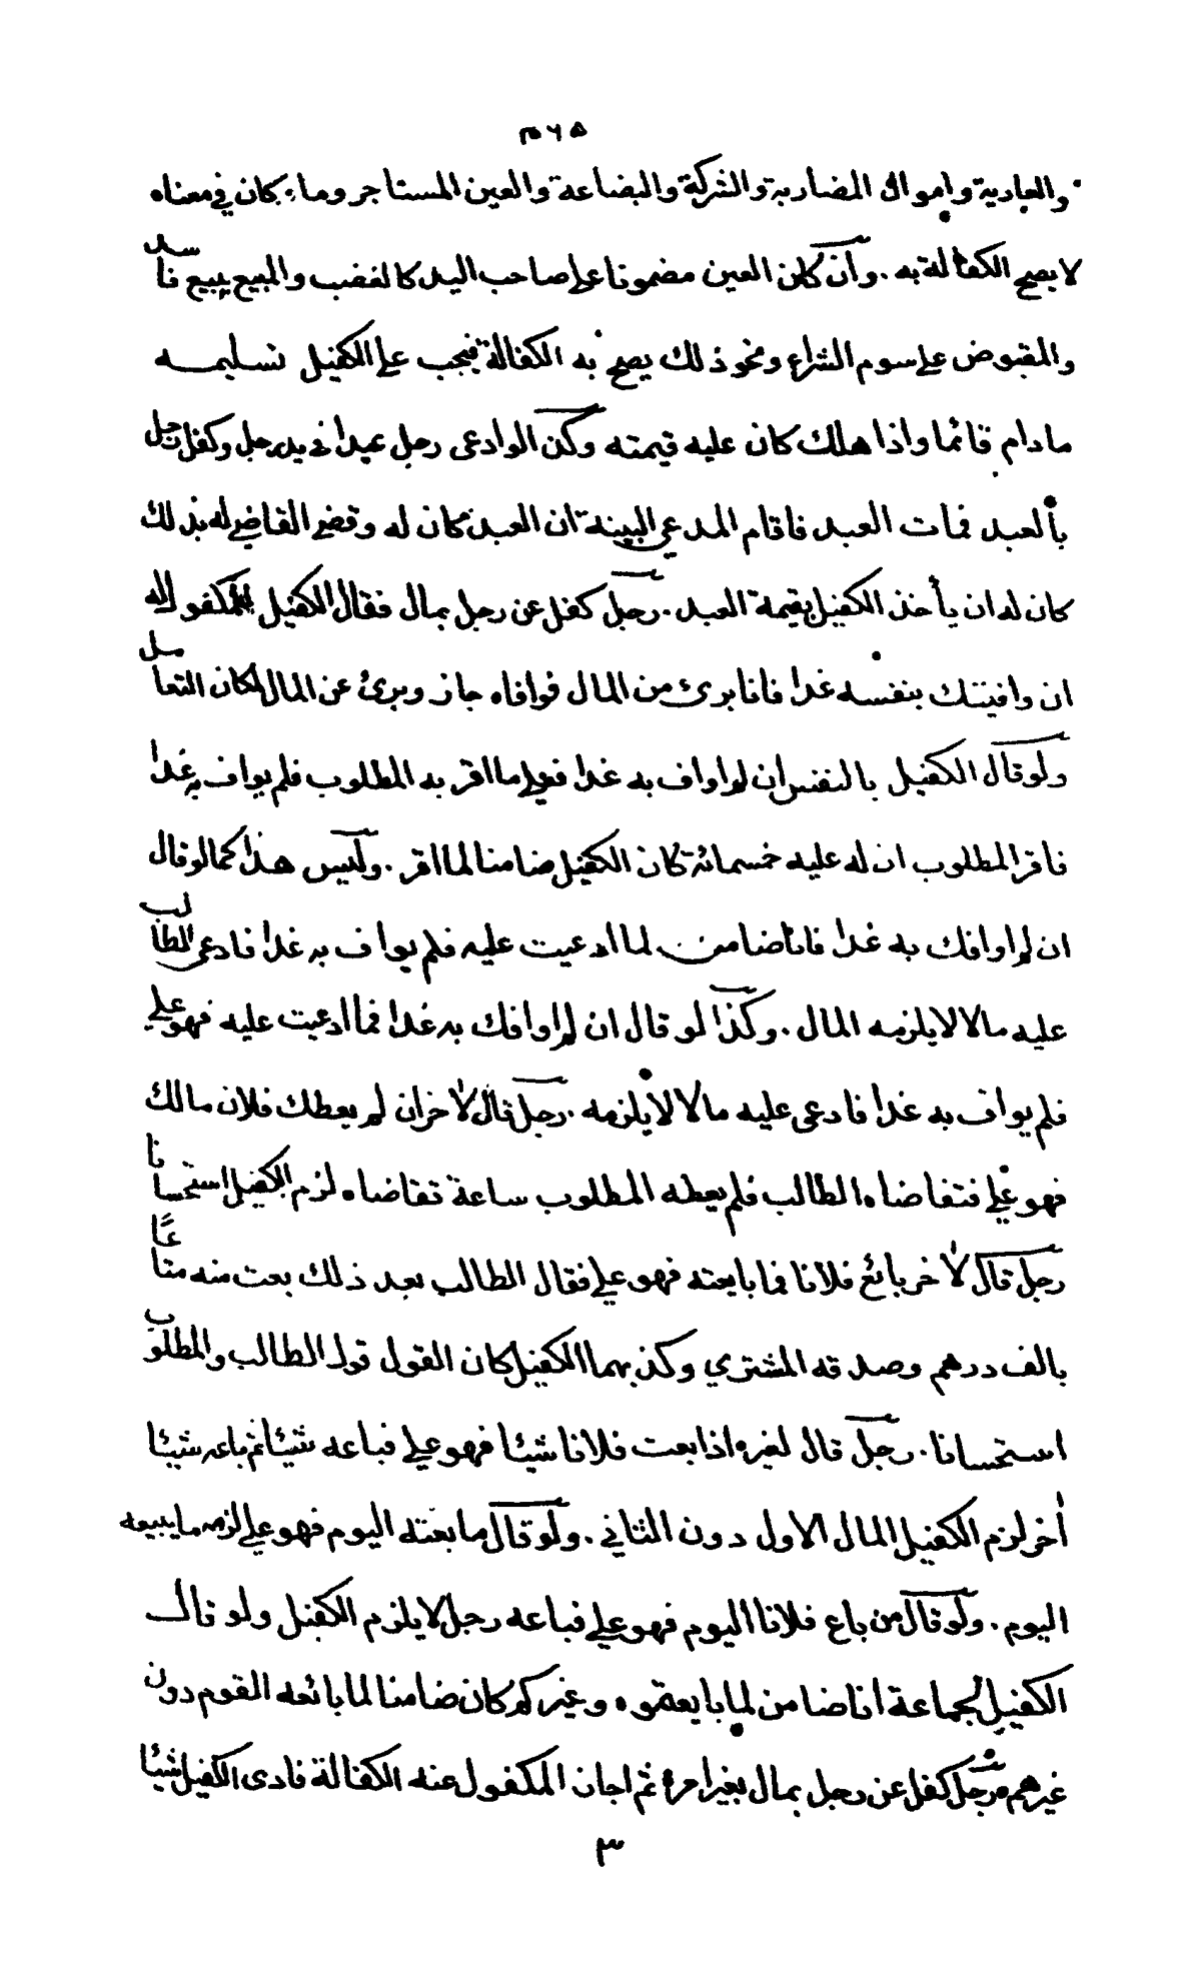 ٥٦٣
والعارية واموال المضاربة والشركة والبضاعة والعين المستاجر وما كان في معناه
لا يصح الكفالة به . وان كان العين مضمونا على صاحب اليد كالغصب والمبيع ببيع فاسد
والمقبوض على سوم الشراء ونحو ذلك يصح به الكفالة فيجب على الكفيل تسليمه
مادام قائما واذا هلك كان عليه قيمته وكذا لو ادعى رجل عبدا في يد رجل وكفل رجل
بالعبد فمات العبد فاقام المدعي البينة ان العبد كان له وقضى القاضي له بذلك
كان له ان يأخذ الكفيل بقيمة العبد . رجل كفل عن رجل بمال فقال الكفيل للمكفول له
ان وافيتك بنفسه غدا فانا برئ من المال فوافاه جاز وبرئ عن المال لمكان التعامل
ولو قال الكفيل بالنفس ان لم اواف به غدا فعلي ما اقر به المطلوب فلم يواف به غدا
فاقر المطلوب ان له عليه خمسمائة كان الكفيل ضامنا لما اقر . وليس هذا كما لو قال
ان لم اوافك به غدا فانا ضامن لما ادعيت عليه فلم يواف به غدا فادعى الطالب
عليه مالا لا يلزمه المال . وكذا لو قال ان لم اوافك به غدا فما ادعيت عليه فهو علي
فلم يواف به غدا فادعى عليه مالا لا يلزمه . رجل قال لآخر ان لم يعطك فلان مالك
فهو علي فتقاضاه الطالب فلم يعطه المطلوب ساعة تقاضاه لزم الكفيل استحسانا
رجل قال لآخر بائع فلانا فما بايعته فهو علي فقال الطالب بعد ذلك بعت منه متاعًا
بالف درهم وصدقه المشتري وكذبهما الكفيل كان القول قول الطالب والمطلوب
استحسانا . رجل قال لغيره اذا بعت فلانا شيئا فهو علي فباعه شيئا ثم باعه شيئا
أخر لزم الكفيل المال الاول دون الثاني . ولو قال ما بعته اليوم فهو علي لزمه ما يبيعه
اليوم . ولو قال من باع فلانا اليوم فهو علي فباعه رجل لا يلزم الكفيل ولو قال
الكفيل لجماعة انا ضامن لما بايعتموه وغيركم كان ضامنا لما بائعه القوم دون
غيرهم رجل كفل عن رجل بمال بغير امره ثم اجاز المكفول عنه الكفالة فادى الكفيل شيئا
٣